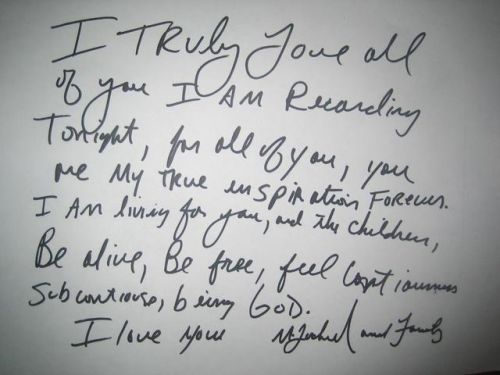 I TRuly Love all
of you I AM Recording
Tonight, for all of you, you
are My TRUE inSPiRation FOReveR.
I AM living for you, and The children,
Be alive, Be free, feel
being GOD.
I love you Michael and Family